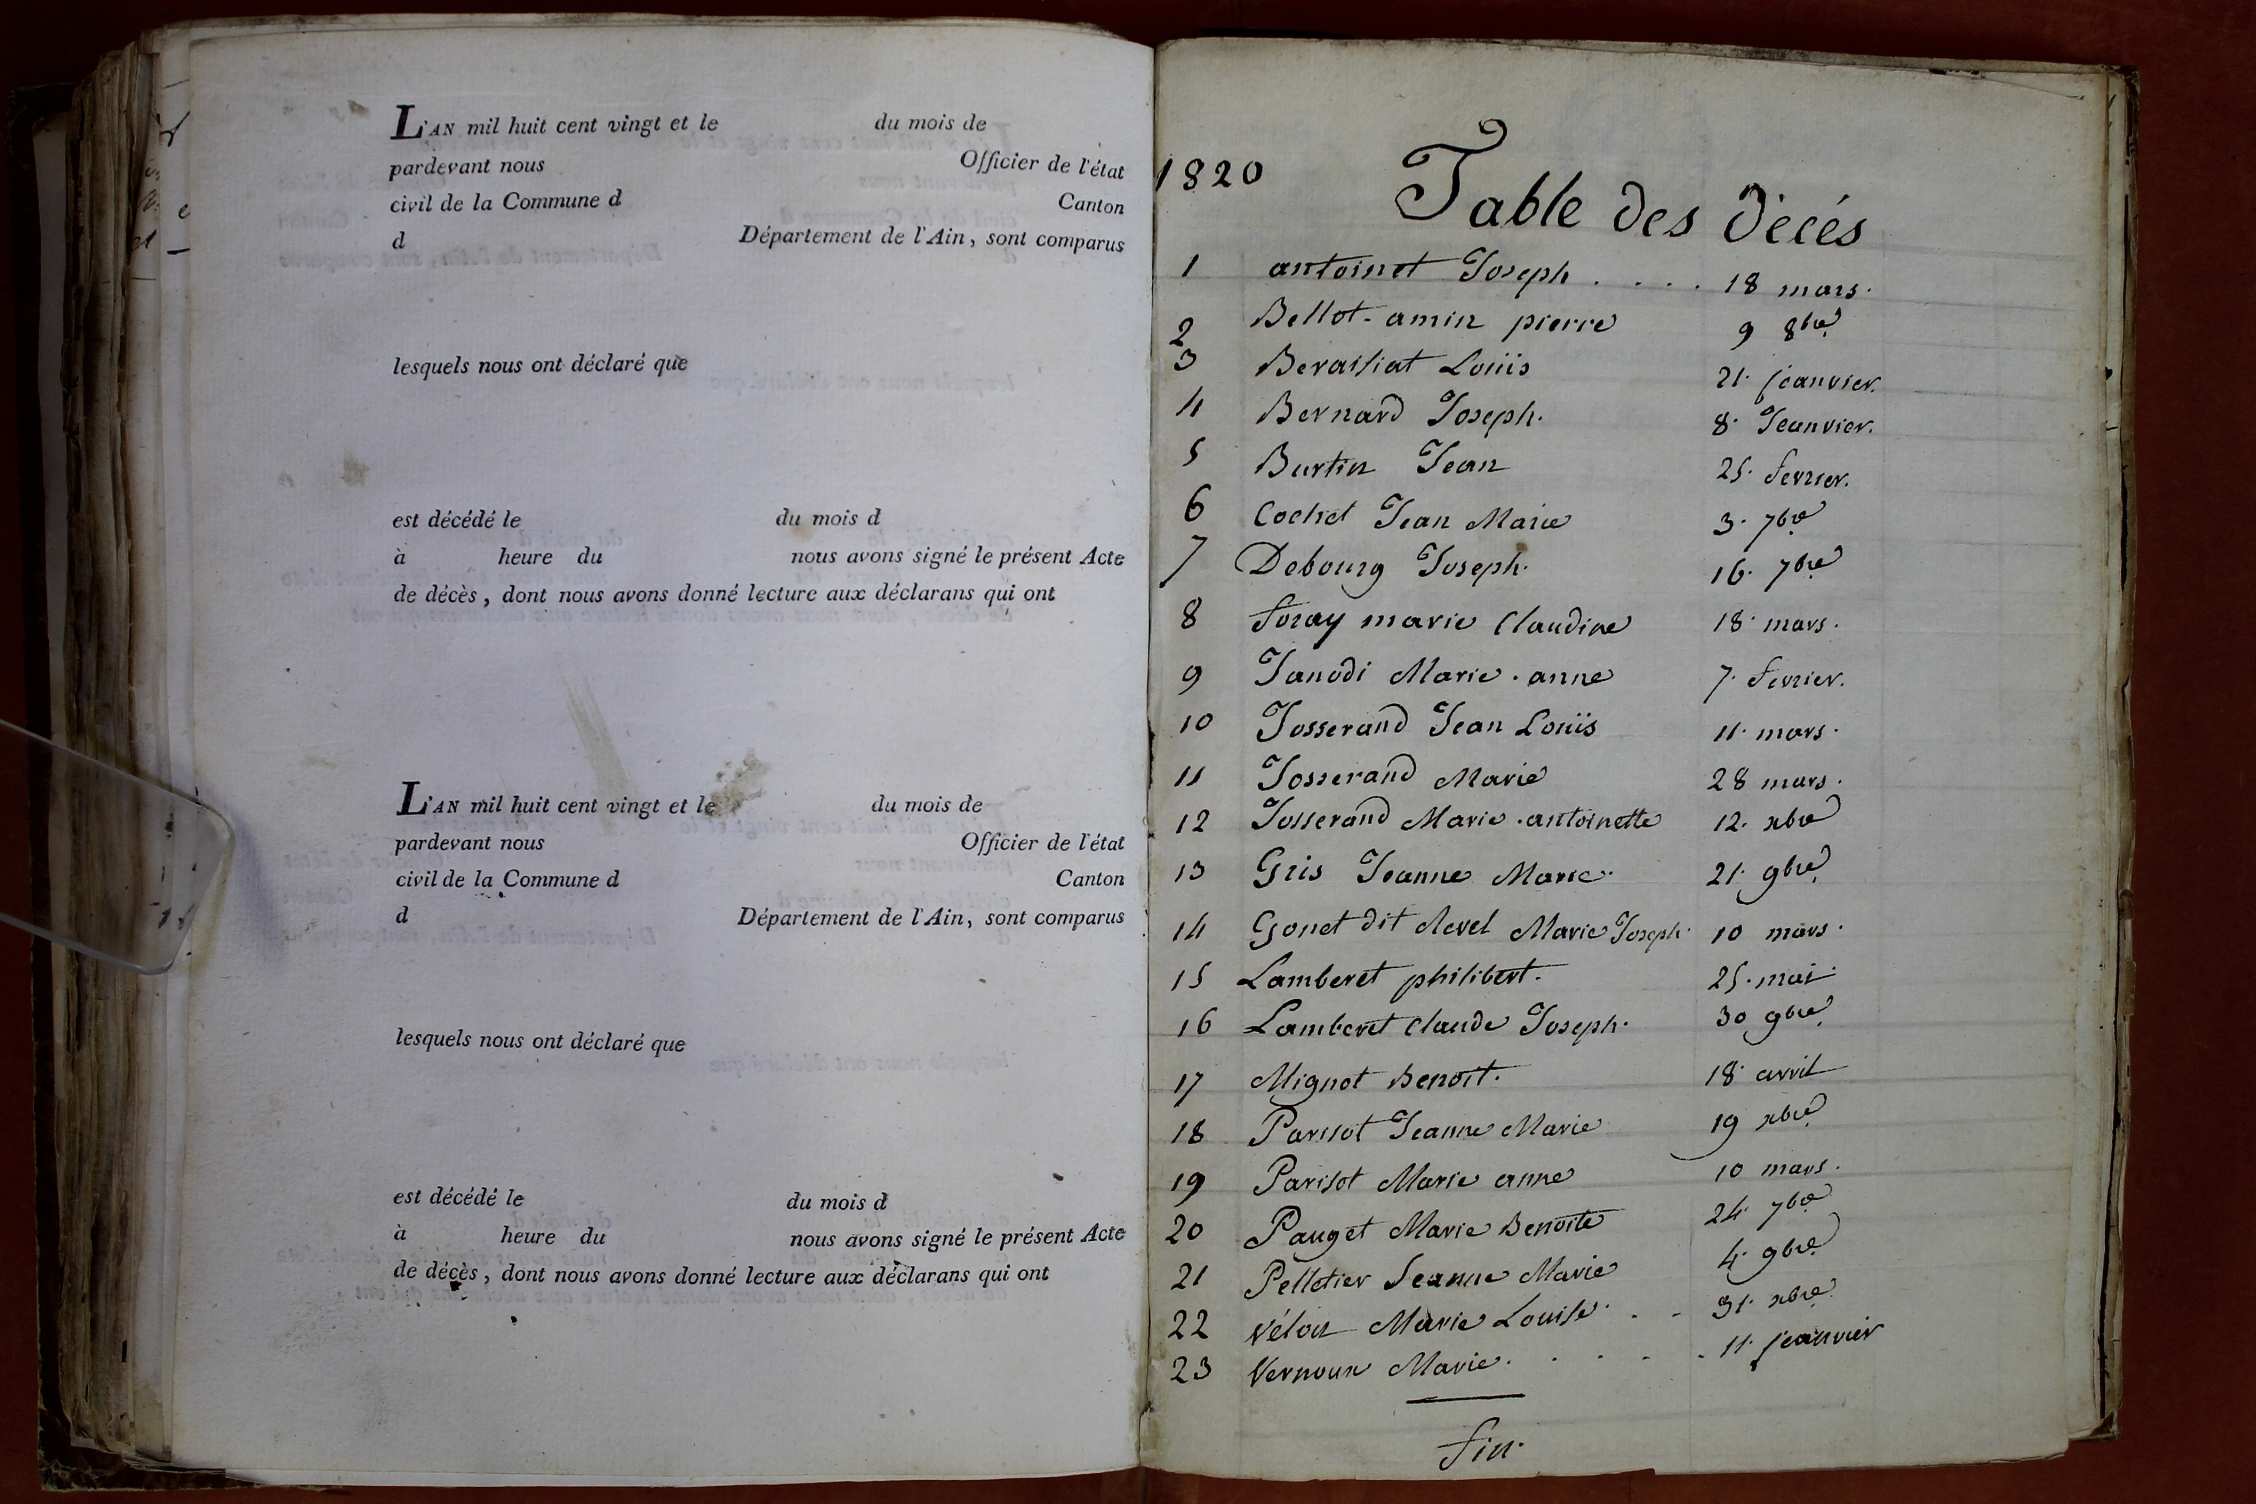 L'AN mil huit cent vingt et le du mois de
pardevant nous Officier de l'état
civil de la Commune d Canton
d Département de l'Ain, sont comparus
lesquels nous ont déclaré que
est décédé le du mois d
à heure du nous avons signé le présent Acte
de décès, dont nous avons donné lecture aux déclarans qui ont
L'AN mil huit cent vingt et le du mois de
pardevant nous Officier de l'état
civil de la Commune d Canton
d Département de l'Ain, sont comparus
lesquels nous ont déclaré que
est décédé le du mois d
à heure du nous avons signé le présent Acte
de décès, dont nous avons donné lecture aux déclarans qui ont
1820
Table des Décés
1 antoinet Joseph . . . . 18 mars.
2 Bellot-amin pierre 9 8bre
3 Berassiat Louis 21. jeanvier.
4 Bernard Joseph. 8. Jeanvier.
5 Burtin Jean 25. fevrier.
6 Cochet Jean Marie 3. 7bre
7 Debourg Joseph. 16. 7bre
8 foray marie Claudine 18. mars.
9 Janodi Marie. anne 7. fevrier.
10 Josserand Jean Louis 11. mars.
11 Josserand Marie 28 mars.
12 Josserand Marie. antoinette 12. xbre
13 Gris Jeanne Marie. 21. 9bre
14 Gonet dit clevel Marie Joseph. 10 mars.
15 Lamberet philibert. 25. mai.
16 Lamberet Claude Joseph. 30 9bre
17 Mignot Benoit. 18. avril
18 Parisot Jeanne Marie 19 xbre
19 Parisot Marie anne 10 mars.
20 Pauget Marie Benoite 24. 7bre
21 Pelletier Jeanne Marie 4. 9bre
22 Vélon Marie Louise. . . 31. xbre
23 Vernoux Marie. . . . . 11. jeanvier
fin.